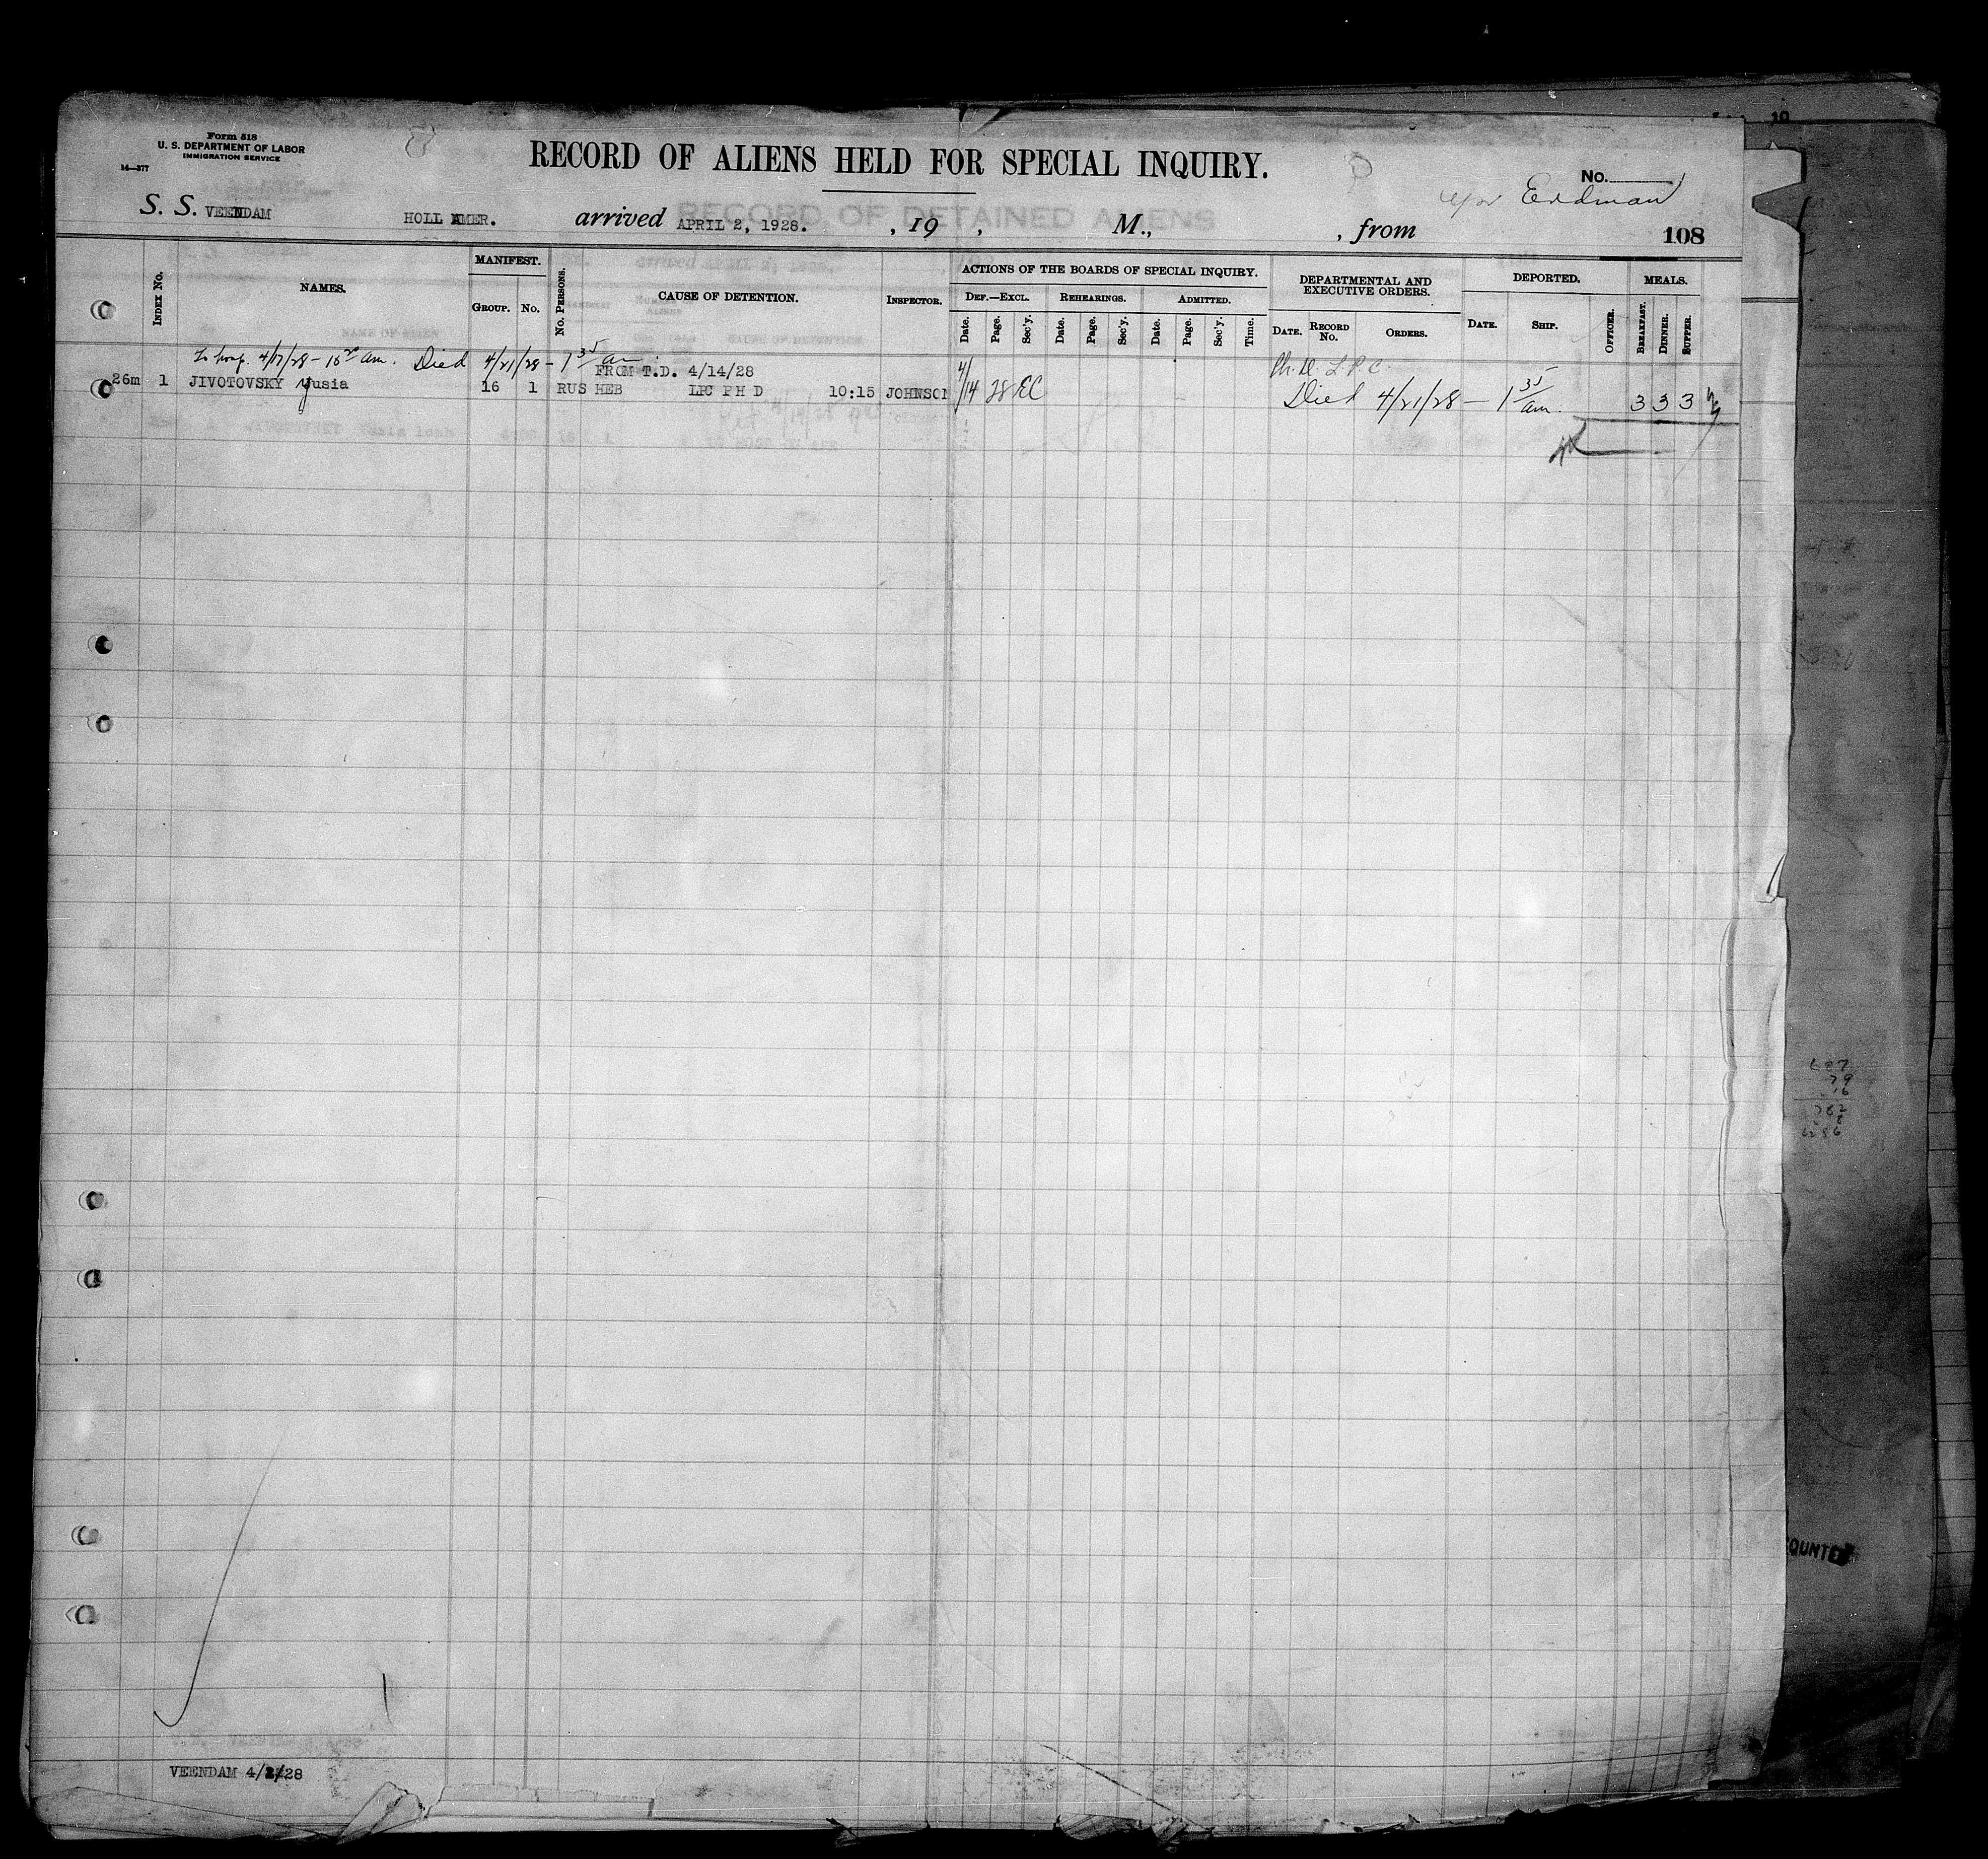 Form 518
U. S. DEPARTMENT OF LABOR
IMMIGRATION SERVICE
14—377
RECORD OF ALIENS HELD FOR SPECIAL INQUIRY.
No.
Erdman
S. S. VEENDAM HOLL AMER. arrived APRIL 2, 1928. , 19 , M., , from
108
RECORD OF DETAINED ALIENS
Index No. NAMES. MANIFEST. Group. No. No. Persons. CAUSE OF DETENTION. Inspector. ACTIONS OF THE BOARDS OF SPECIAL INQUIRY. DEPARTMENTAL AND EXECUTIVE ORDERS. DEPORTED. MEALS.
Def.—Excl. Rehearings. Admitted.
Date. Page. Sec'y. Date. Page. Sec'y. Date. Page. Sec'y. Time. Date. Record No. Orders. Date. Ship. Officer. Breakfast. Dinner. Supper.
To hosp. 4/7/28 – am. Died 4/21/28 – 1 35 am
FROM T.D. 4/14/28
Ph. D. L.P.C.
26m 1 JIVOTOVSKY Yusia 16 1 RUS HEB LPC PH D 10:15 JOHNSON 4/14 28 EC Died 4/21/28 – 1 35 am. 3 3 3
687
79
16
762
8
6256
COUNTED
VEENDAM 4/2/28